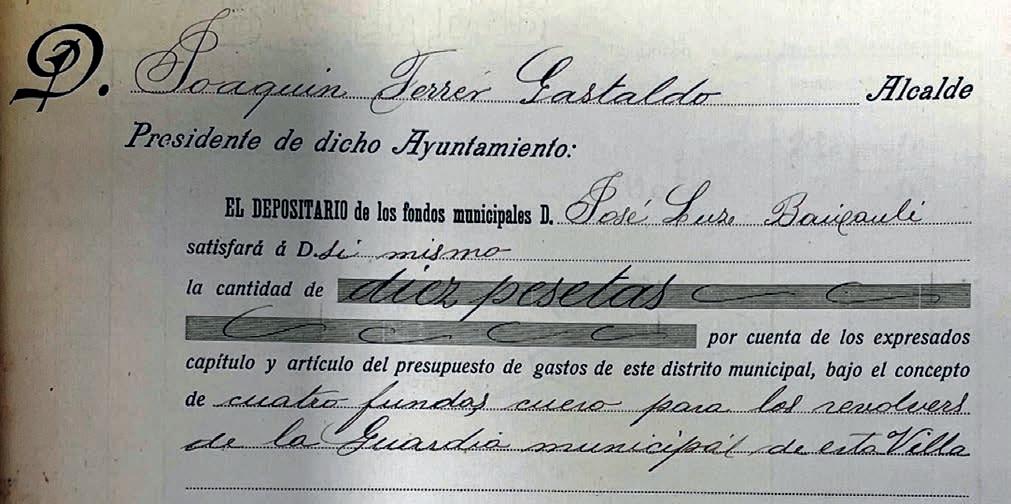 D. Joaquin Ferrér Gastaldo Alcalde
Presidente de dicho Ayuntamiento:
EL DEPOSITARIO de los fondos municipales D. José Luze Bauxauli
satisfará á D. si mismo
la cantidad de diez pesetas
por cuenta de los expresados
capítulo y artículo del presupuesto de gastos de este distrito municipal, bajo el concepto
de cuatro fundas cuero para los revolvers
de la Guardia municipal de esta Villa